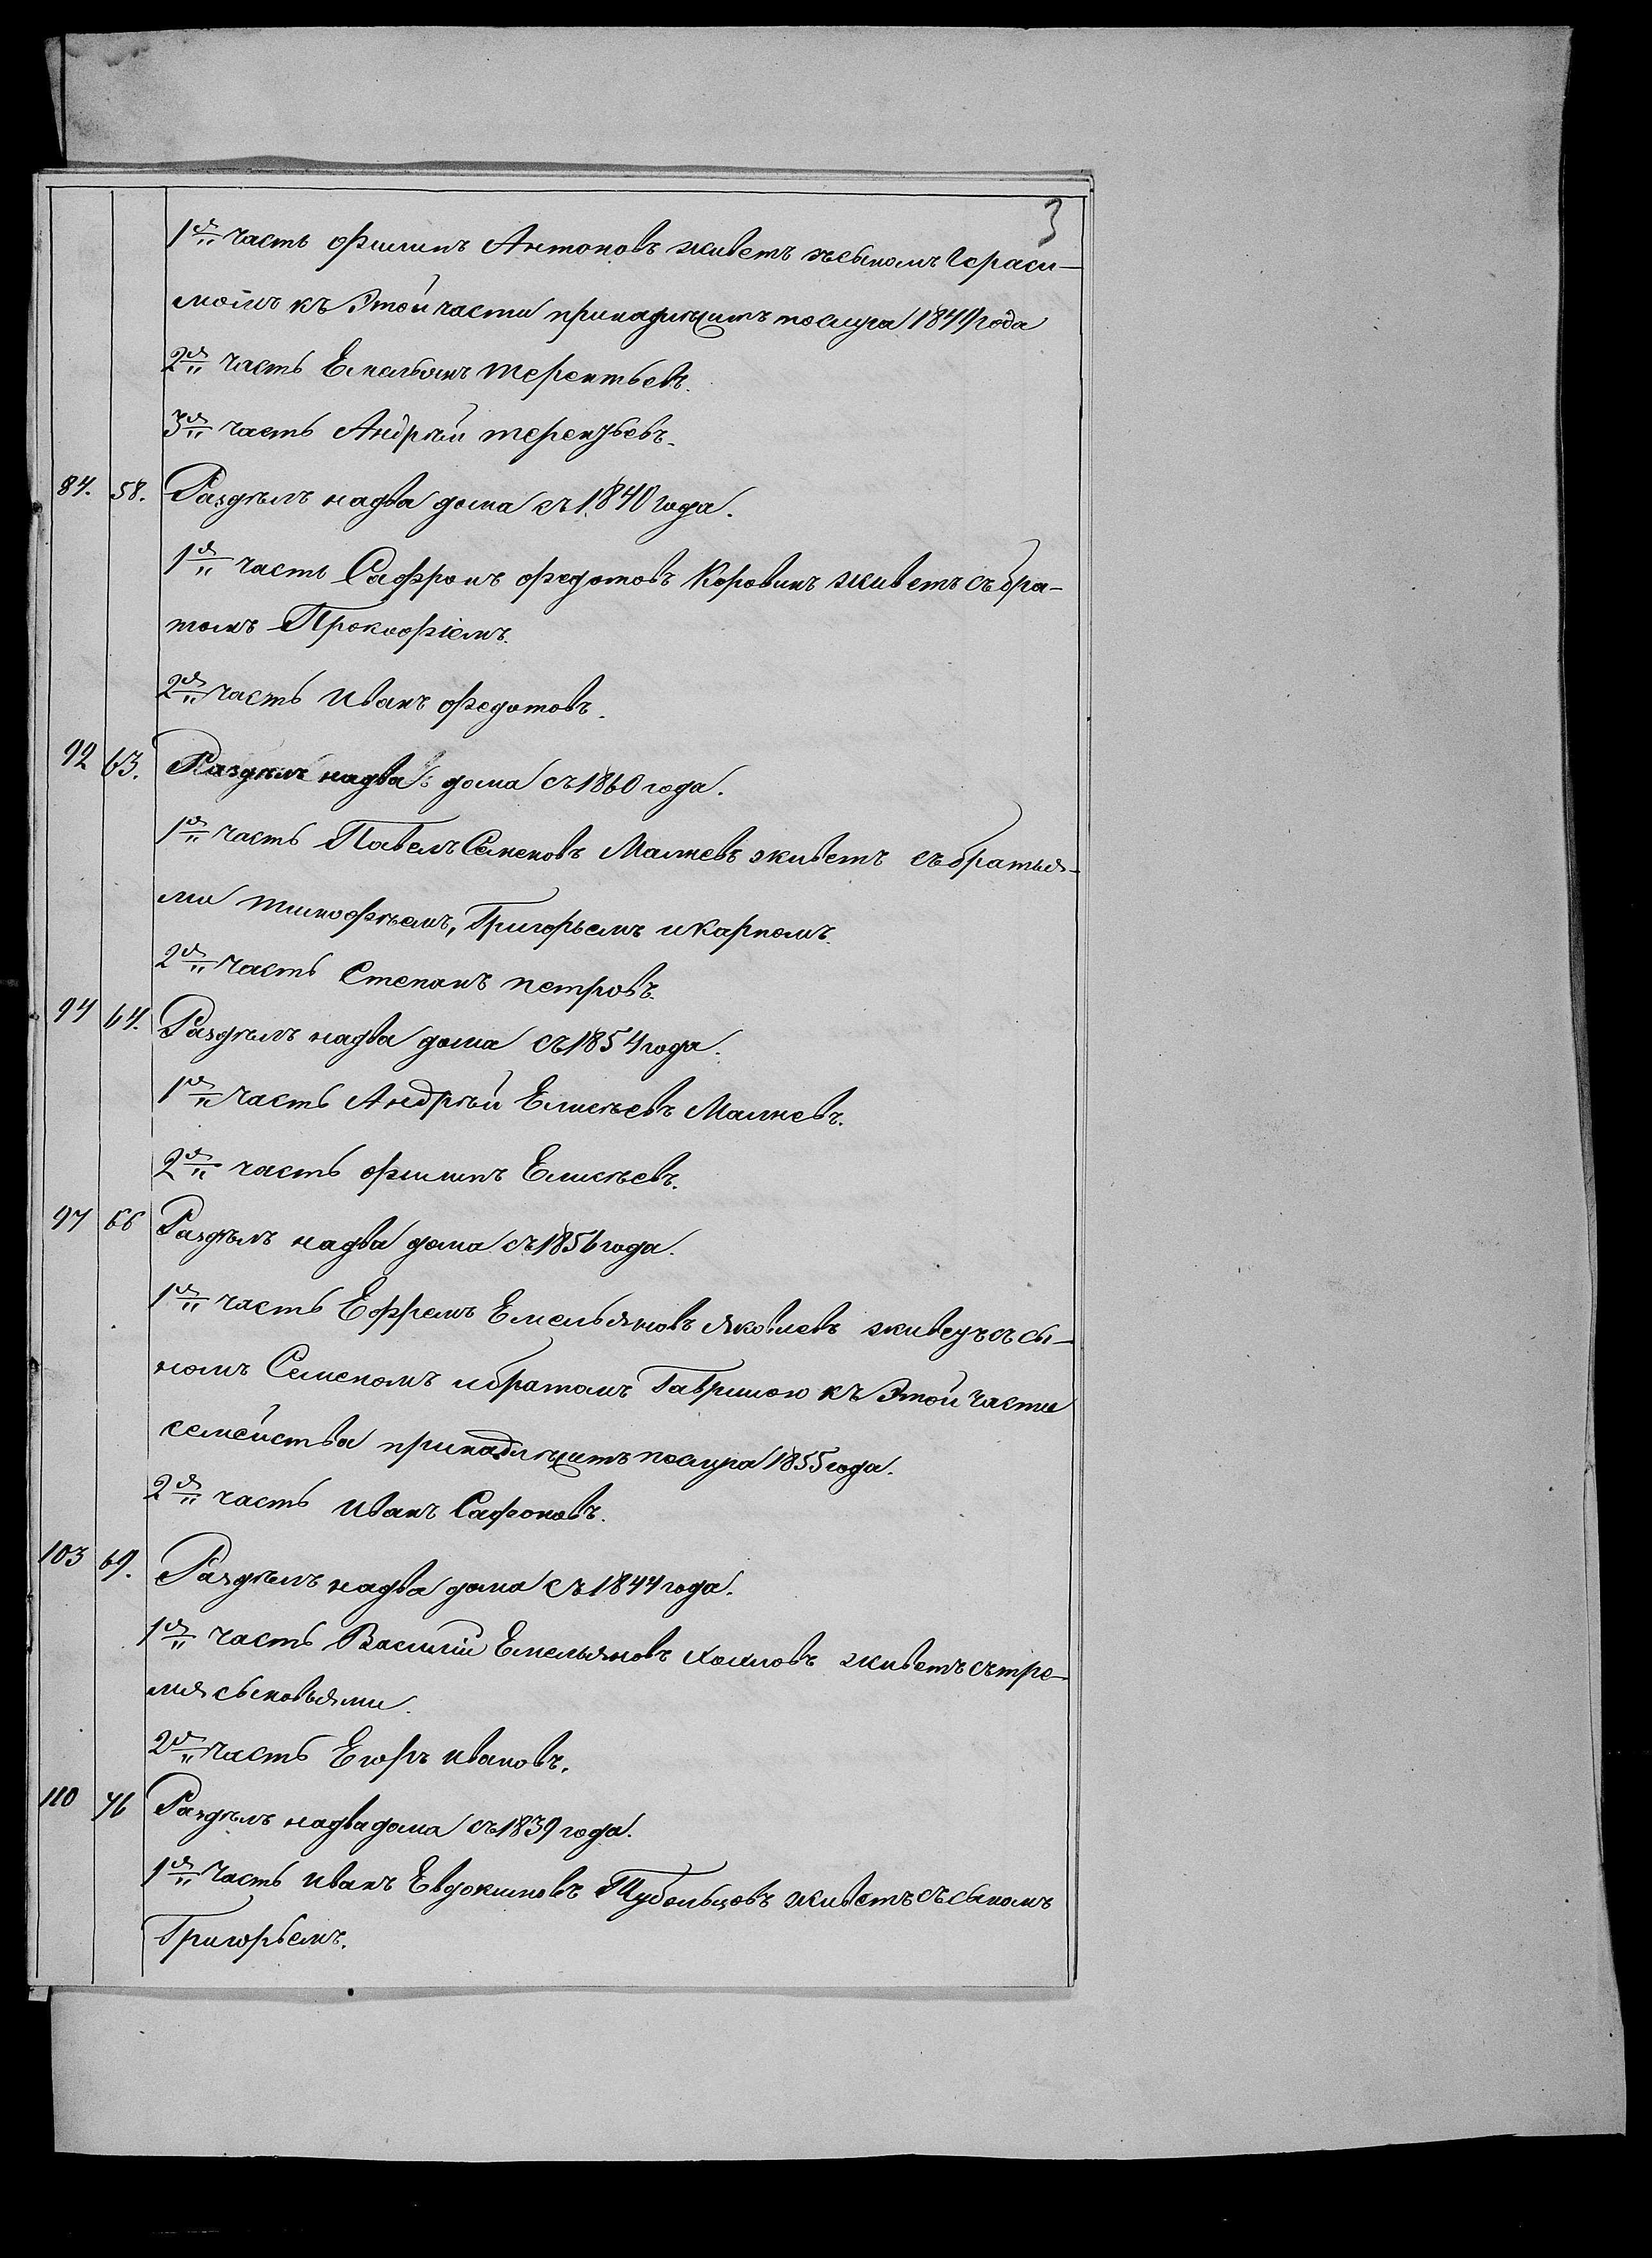 3
1я часть Филипъ Антоновъ живетъ съсыномъ Гераси-
момъ къ Этой части принадлѣжитъ послуга 1849 года
2я часть Емельянъ терентьевъ.
3я часть Андрѣй терентьевъ.
84. 58. Раздѣлъ надва дома съ 1840 года.
1я часть Сафронъ федотовъ Коровинъ живетъ съ бра-
томъ Прокофіемъ.
2я часть Иванъ федотовъ.
92 63. Раздѣлъ надва дома съ 1860 года.
1я часть Павелъ Семеновъ Малневъ живетъ съ братья-
ми тимофѣемъ, Григорьемъ и Карпомъ.
2я часть Степанъ петровъ.
94 64. Раздѣлъ надва дома съ 1854 года.
1я часть Андрѣй Елисѣевъ Малневъ.
2я часть филипъ Елисѣевъ.
97 66 Раздѣлъ надва дома съ 1856 года.
1я часть Ефремъ Емельяновъ яковлевъ живетъ съ сы-
номъ Семеномъ и братомъ Гаврилою къ Этой части
семейства принадлѣжитъ послуга 1855 года.
2я часть Иванъ Сафоновъ.
103 69. Раздѣлъ надва дома съ 1844 года.
1я часть Василій Емельяновъ хохловъ живетъ съ тре-
мя сыновьями.
2я часть Егоръ Ивановъ.
110 76 Раздѣлъ надва дома съ 1839 года.
1я часть Иванъ Евдокимовъ Тубольцовъ живетъ съ сыномъ
Григорьемъ.